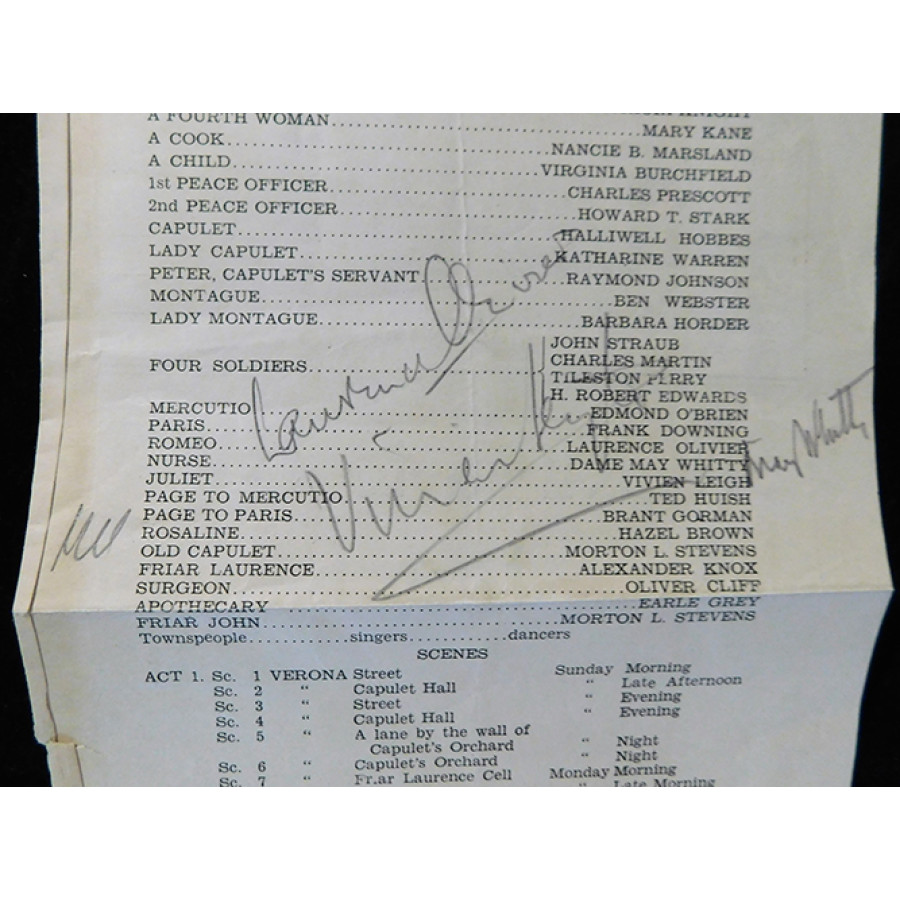 KNIGHT
A FOURTH WOMAN..............................MARY KANE
A COOK..............................NANCIE B. MARSLAND
A CHILD..............................VIRGINIA BURCHFIELD
1st PEACE OFFICER..............................CHARLES PRESCOTT
2nd PEACE OFFICER..............................HOWARD T. STARK
CAPULET..............................HALLIWELL HOBBES
LADY CAPULET..............................KATHARINE WARREN
PETER, CAPULET'S SERVANT....................RAYMOND JOHNSON
MONTAGUE..............................BEN WEBSTER
LADY MONTAGUE..............................BARBARA HORDER
JOHN STRAUB
FOUR SOLDIERS..............................CHARLES MARTIN
TILESTON PERRY
H. ROBERT EDWARDS
MERCUTIO..............................EDMOND O'BRIEN
PARIS..............................FRANK DOWNING
ROMEO..............................LAURENCE OLIVIER
NURSE..............................DAME MAY WHITTY
JULIET..............................VIVIEN LEIGH
PAGE TO MERCUTIO..............................TED HUISH
PAGE TO PARIS..............................BRANT GORMAN
ROSALINE..............................HAZEL BROWN
OLD CAPULET..............................MORTON L. STEVENS
FRIAR LAURENCE..............................ALEXANDER KNOX
SURGEON..............................OLIVER CLIFF
APOTHECARY..............................EARLE GREY
FRIAR JOHN..............................MORTON L. STEVENS
Townspeople............singers............dancers
Laurence Olivier
Vivien Leigh
May Whitty
SCENES
ACT 1. Sc. 1 VERONA Street Sunday Morning
Sc. 2 " Capulet Hall " Late Afternoon
Sc. 3 " Street " Evening
Sc. 4 " Capulet Hall " Evening
Sc. 5 " A lane by the wall of
Capulet's Orchard " Night
Sc. 6 " Capulet's Orchard " Night
Sc. 7 " Fr.ar Laurence Cell Monday Morning
" Late Morning